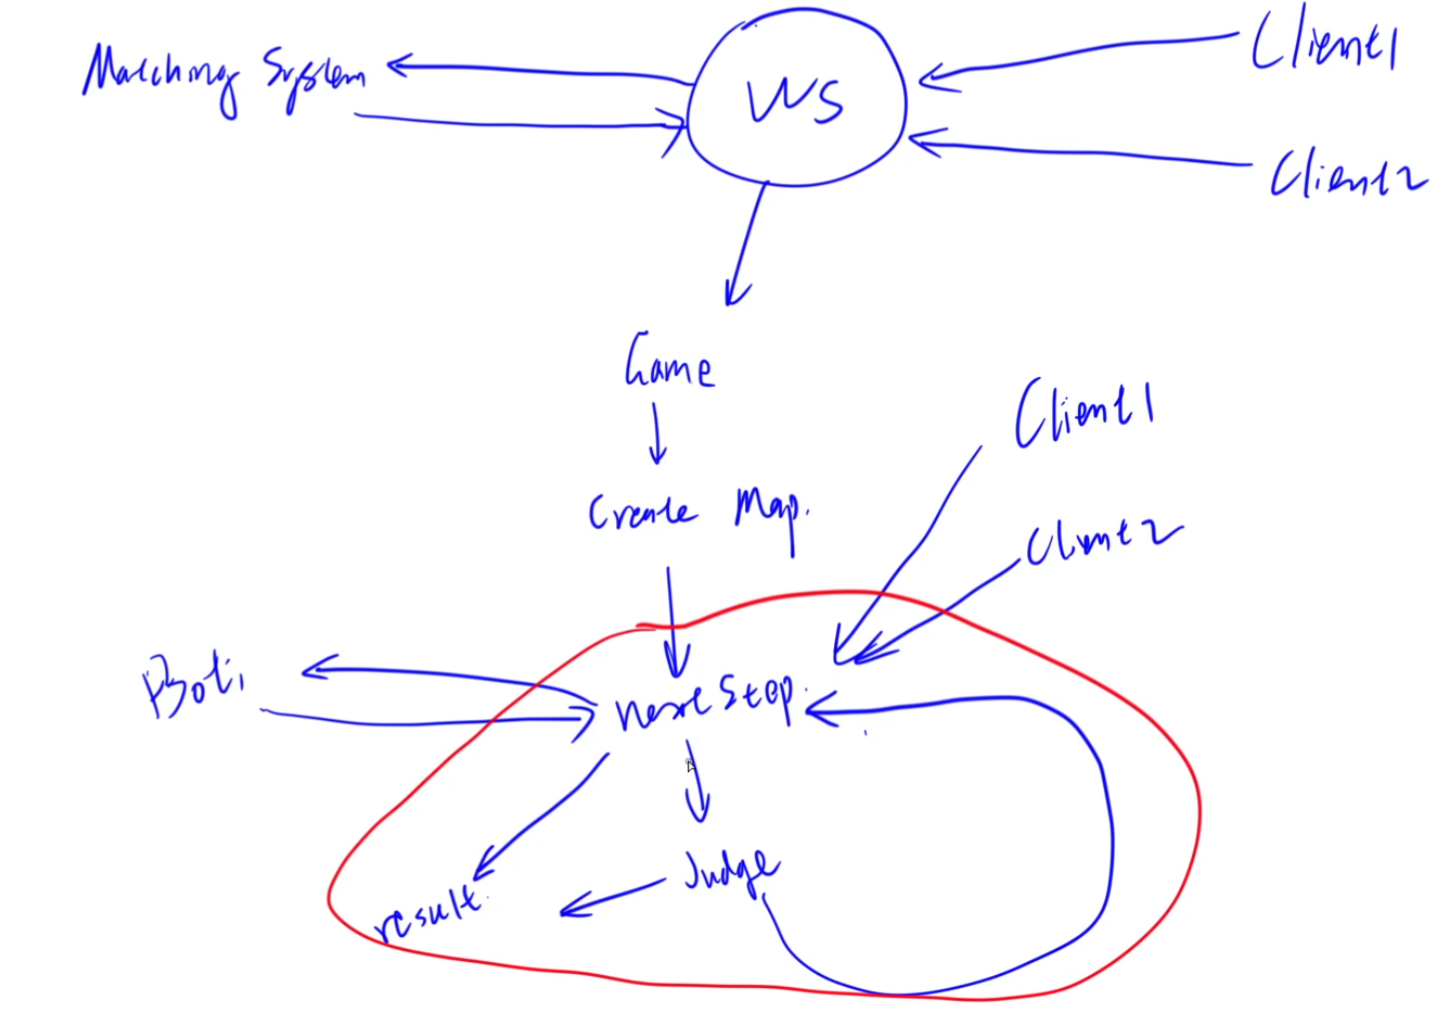 Matching System
WS
Client1
Client2
Game
Create Map.
Client1
Client2
Bot
next step.
Judge
result.